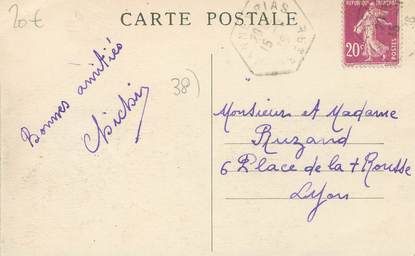 20€
CARTE POSTALE
RÉPUBLIQUE FRANÇAISE
20c
POSTES
38)
Bonnes amitiés
Monsieur et Madame
Ruzand
6 Place de la + Rousse
Lyon